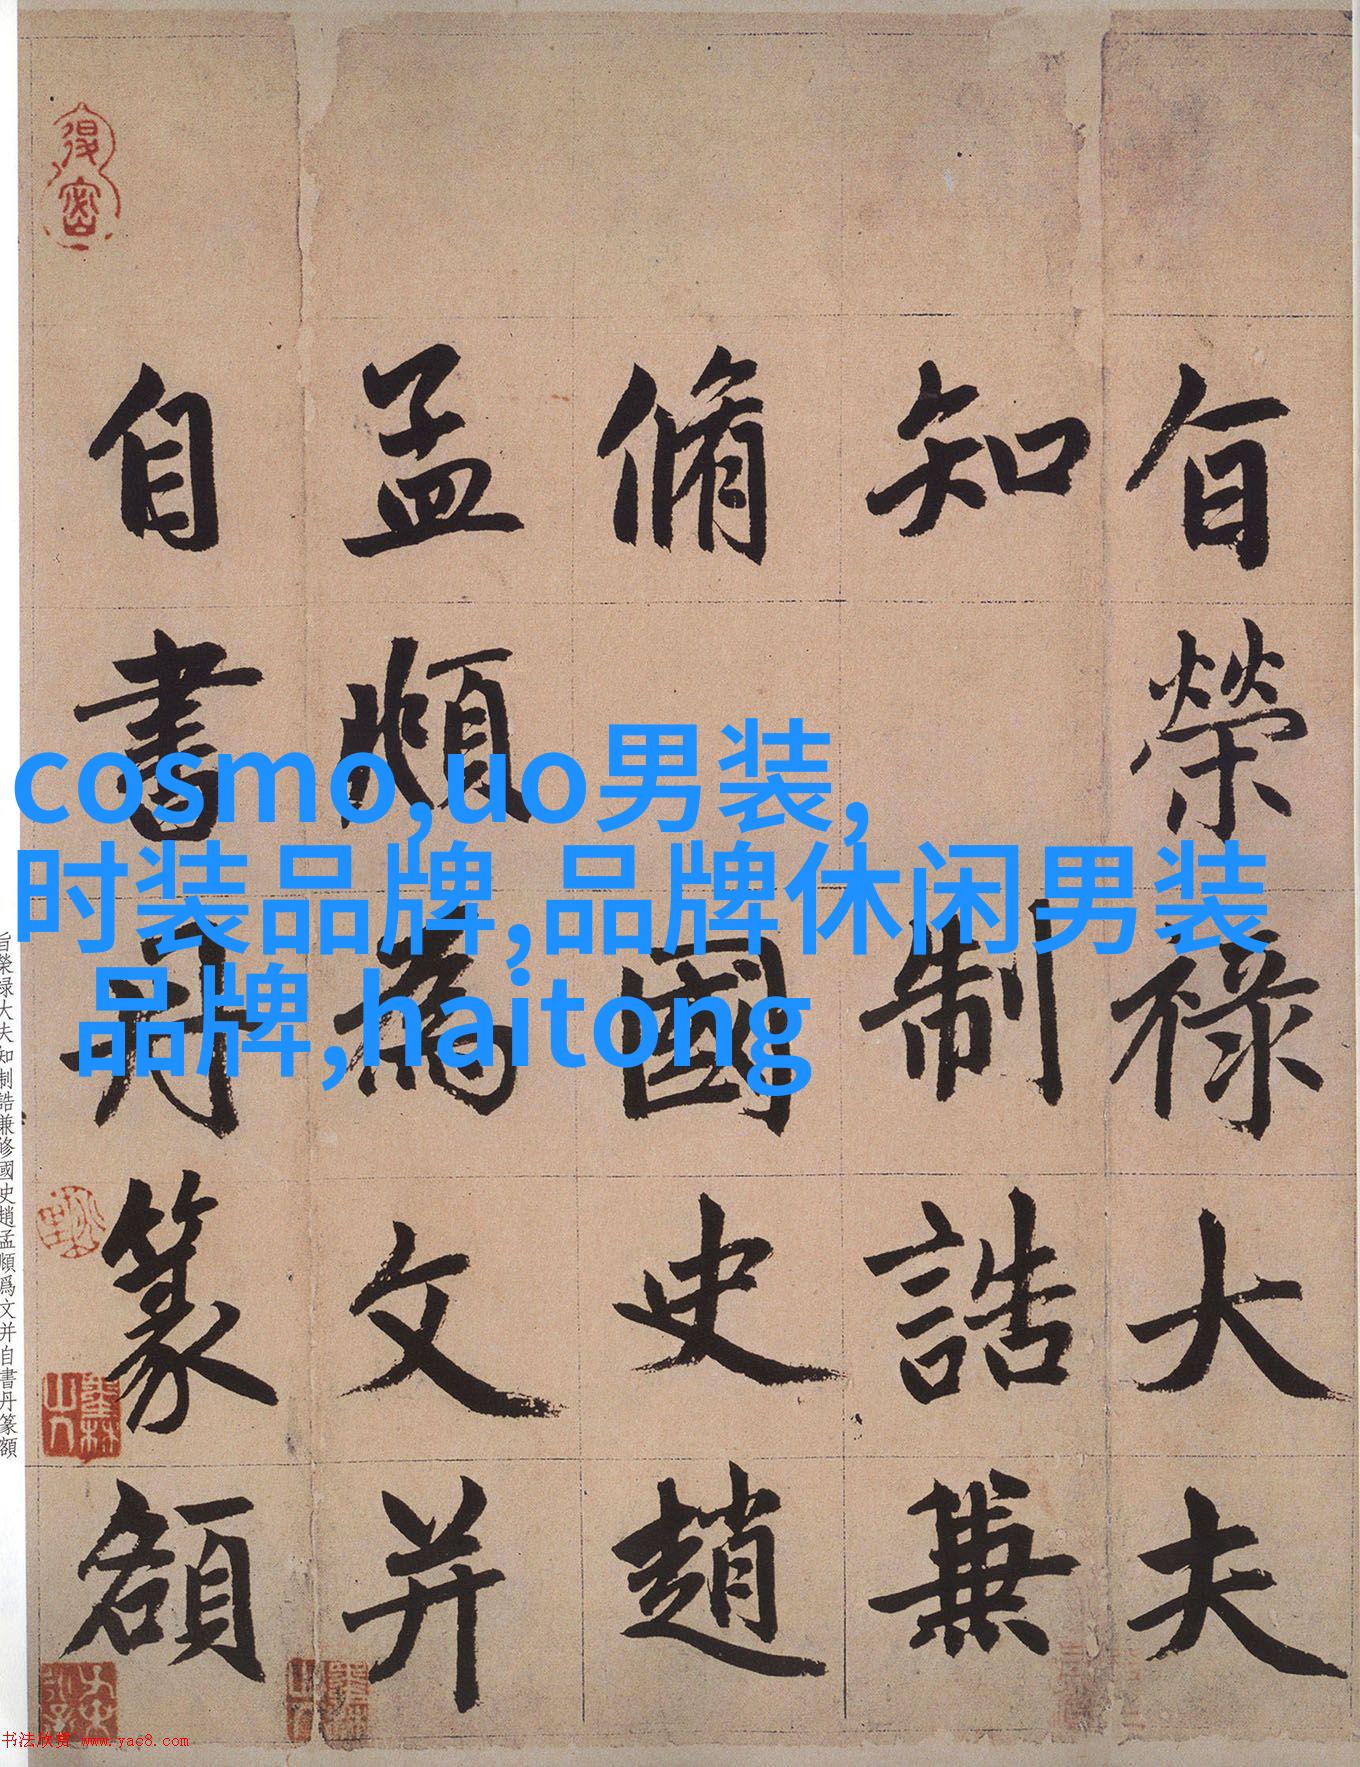 旨榮禄大夫
知制誥兼
脩國史趙
孟頫為文并
自書丹篆額
cosmo,uo男装,
时装品牌,品牌休闲男装
品牌,haitong
旨榮禄大夫知制誥兼修國史趙孟頫爲文并自書丹篆額
书法欣赏 www.yac8.com